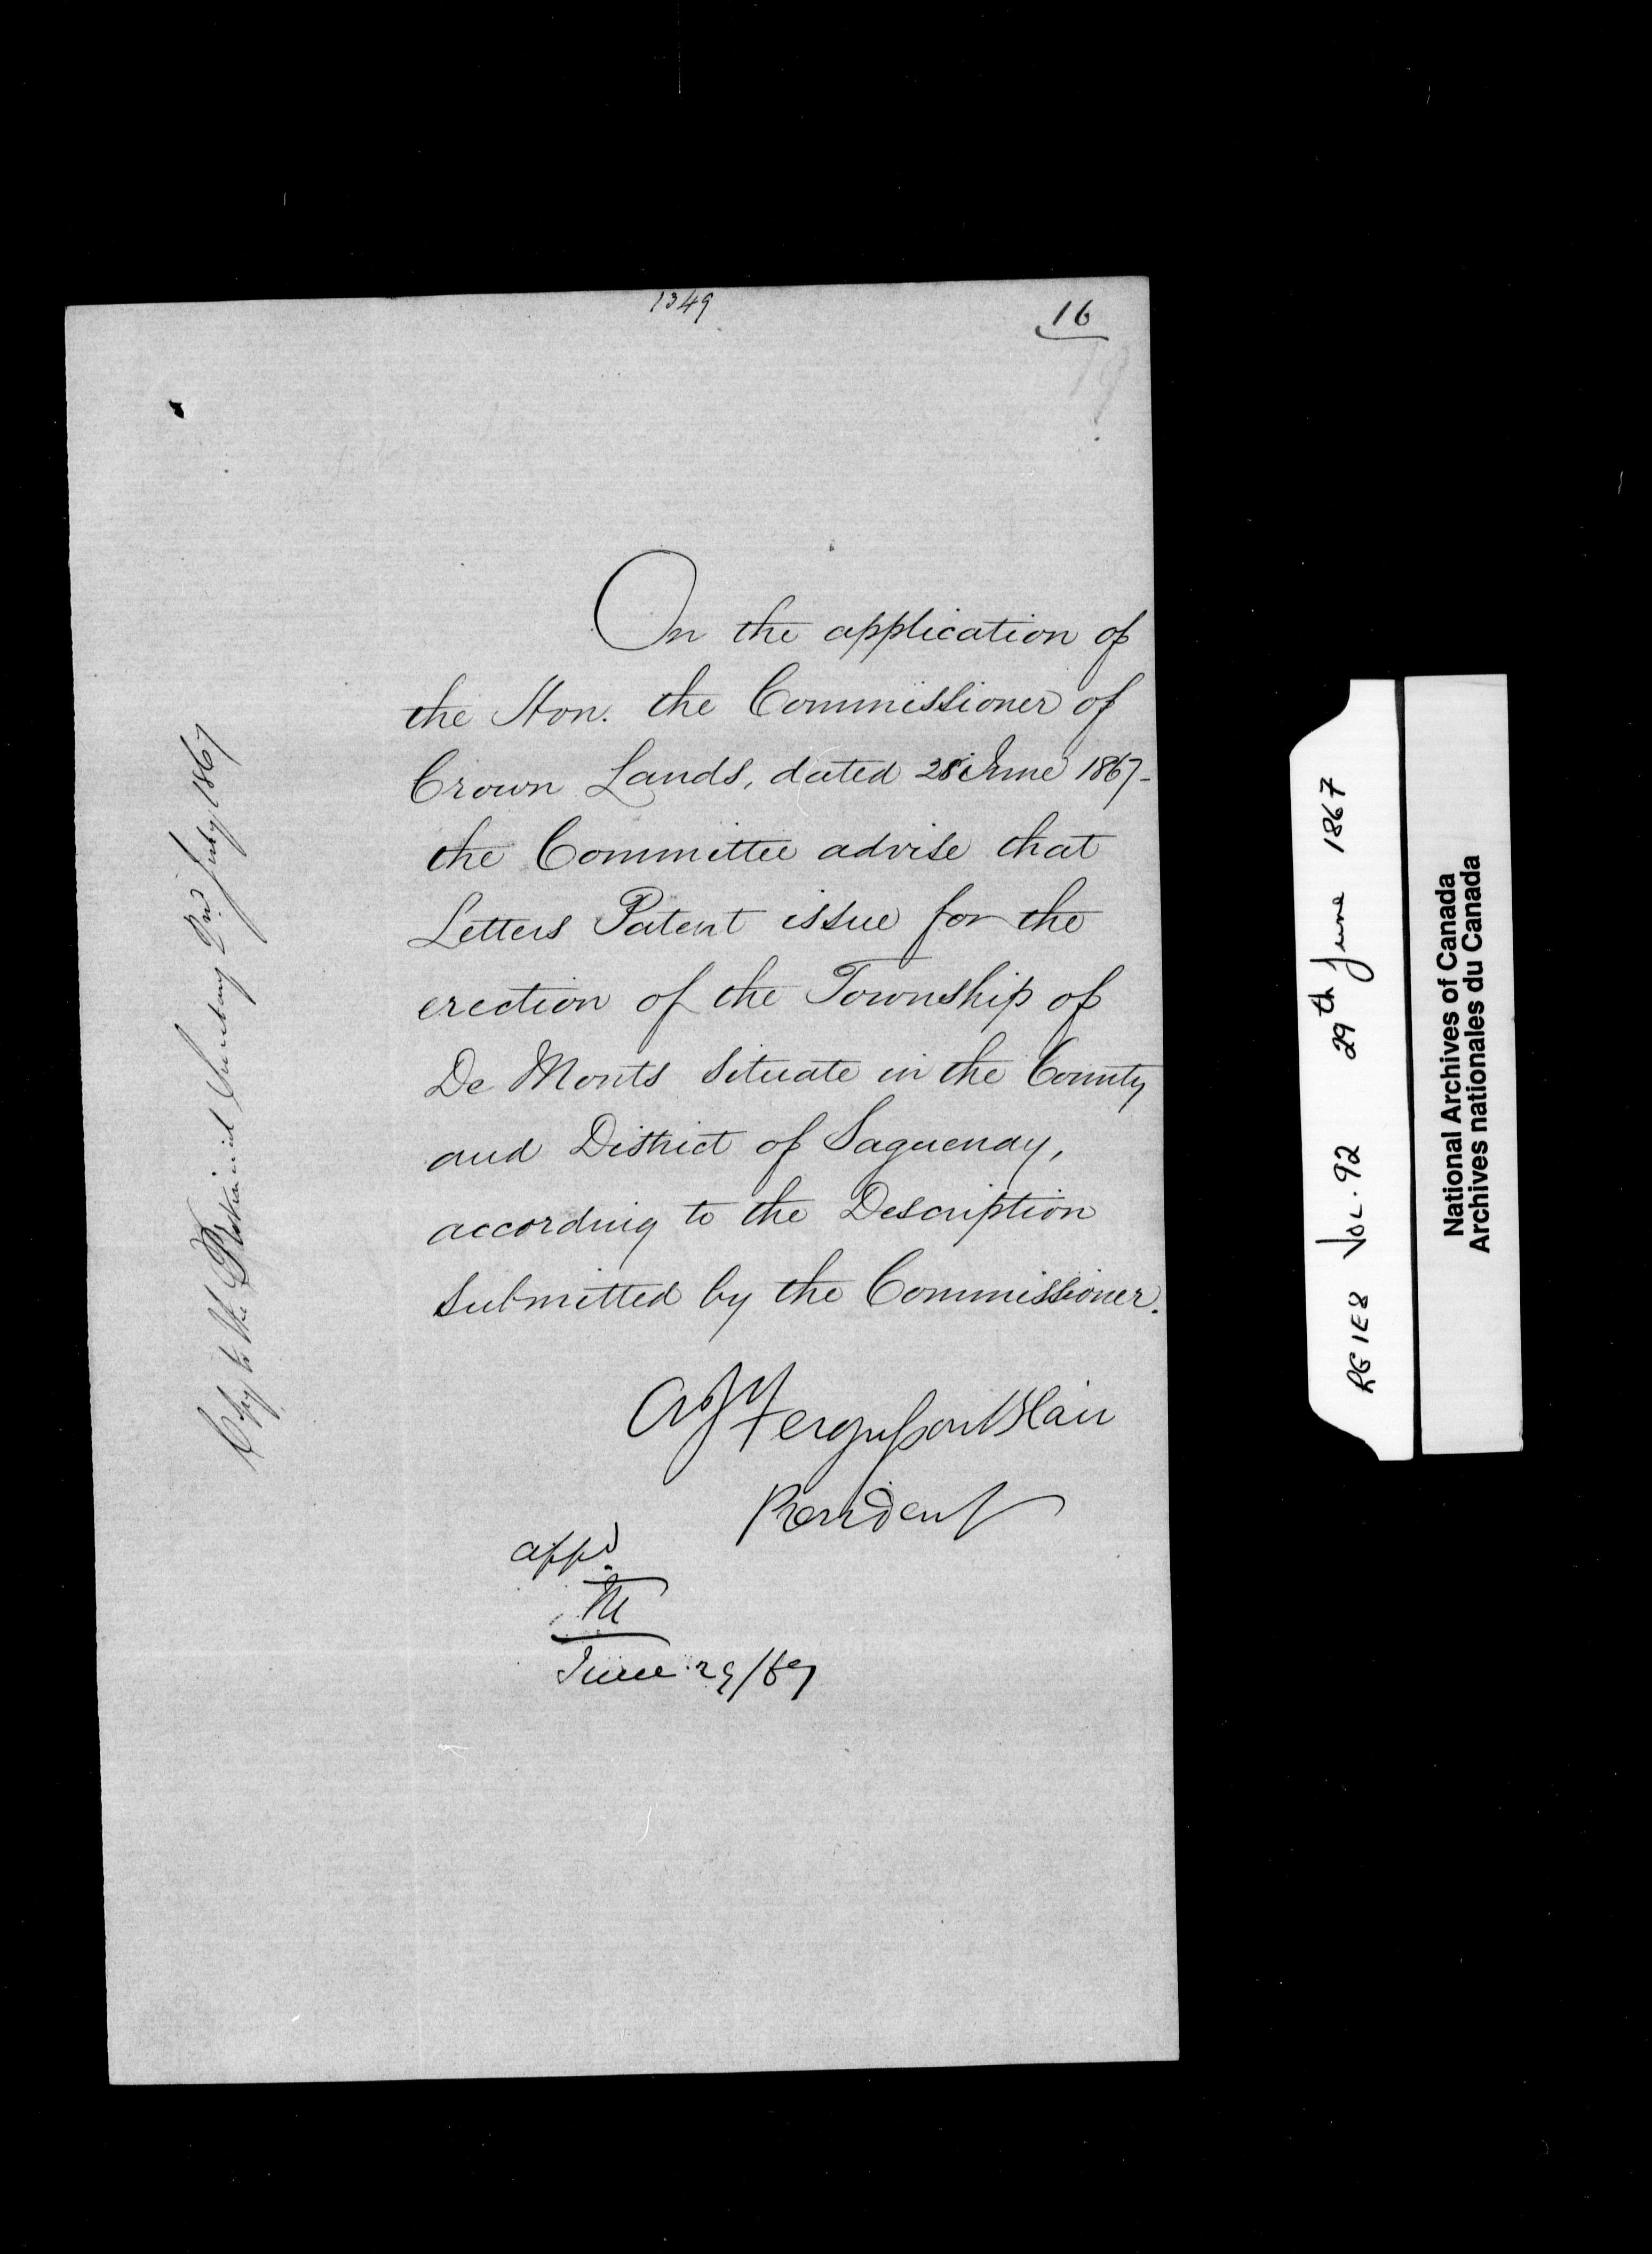 1349
16
19
On the application of
the Hon. the Commissioner of
Crown Lands, dated 28 June 1867-
the Committee advise that
Letters Patent issue for the
erection of the Township of
De Monts situate in the County
and District of Saguenay,
according to the Description
submitted by the Commissioner.
A J Fergusson Blair
President
appd.
M
June 29/67
Copy to the Provincial Secretary 2nd July 1867
RG 1E8 VOL. 92 29th June 1867
National Archives of Canada
Archives nationales du Canada